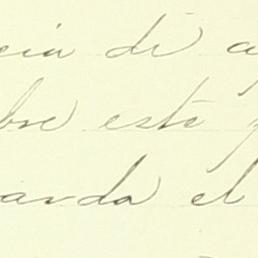 cia de
bre este
anda el